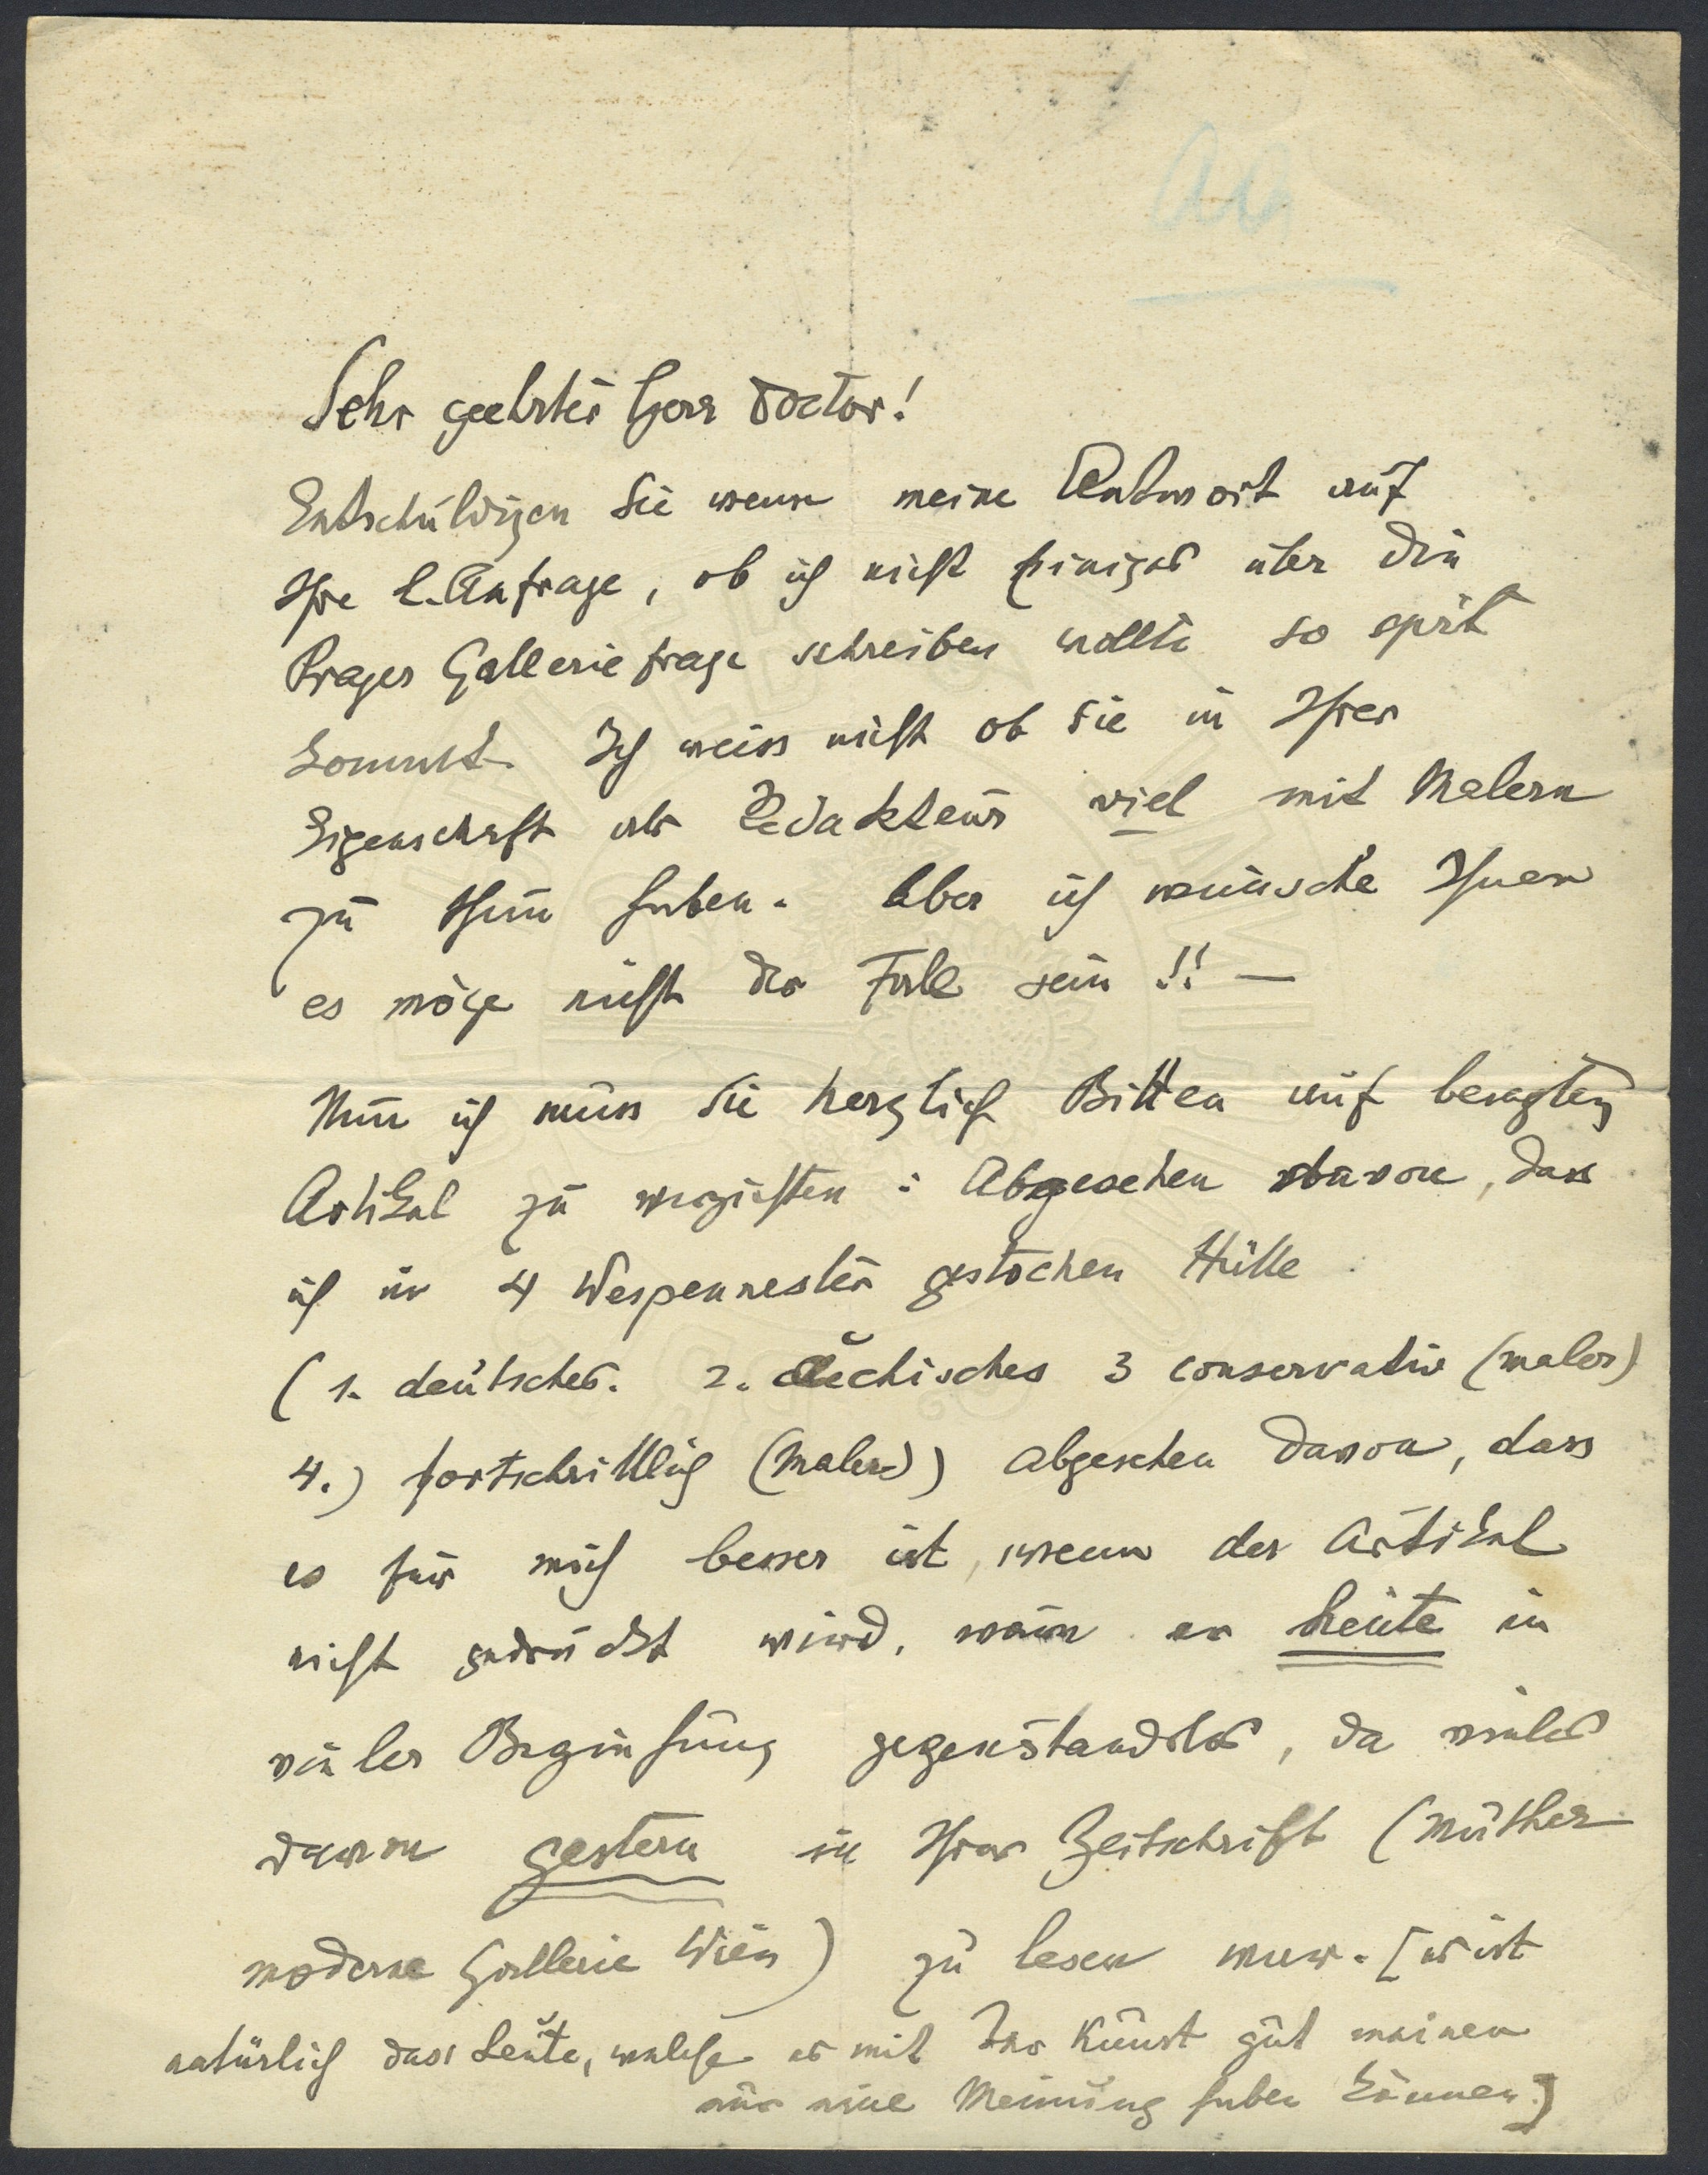 Sehr geehrter Herr Doctor!
Entschuldigen Sie wenn meine Antwort auf
Ihre l. Anfrage, ob ich nicht Einiges über die
Prager Galleriefrage schreiben wollte so spät
kommt. Ich weiss nicht ob Sie in Ihrer
Eigenschaft als Redakteur viel mit Malern
zu thun haben. Aber ich wünsche Ihnen
es möge nicht der Fall sein!! —
Nun ich muss Sie herzlich Bitten auf besagten
Artikel zu verzichten: Abgesehen davon, dass
ich in 4 Wespennester gestochen hätte
(1. deutsches. 2. čechisches 3 conservativ (maler)
4.) fortschrittlich (Maler)) abgesehen davon, dass
es für mich besser ist, wenn der Artikel
nicht gedruckt wird, wäre er heute in
vieler Beziehung gegenstandslos, da vieles
davon gestern in Ihrer Zeitschrift (Muther
moderne Gallerie Wien) zu lesen war. [es ist
natürlich dass Leute, welche es mit der Kunst gut meinen
nur eine Meinung haben können.]